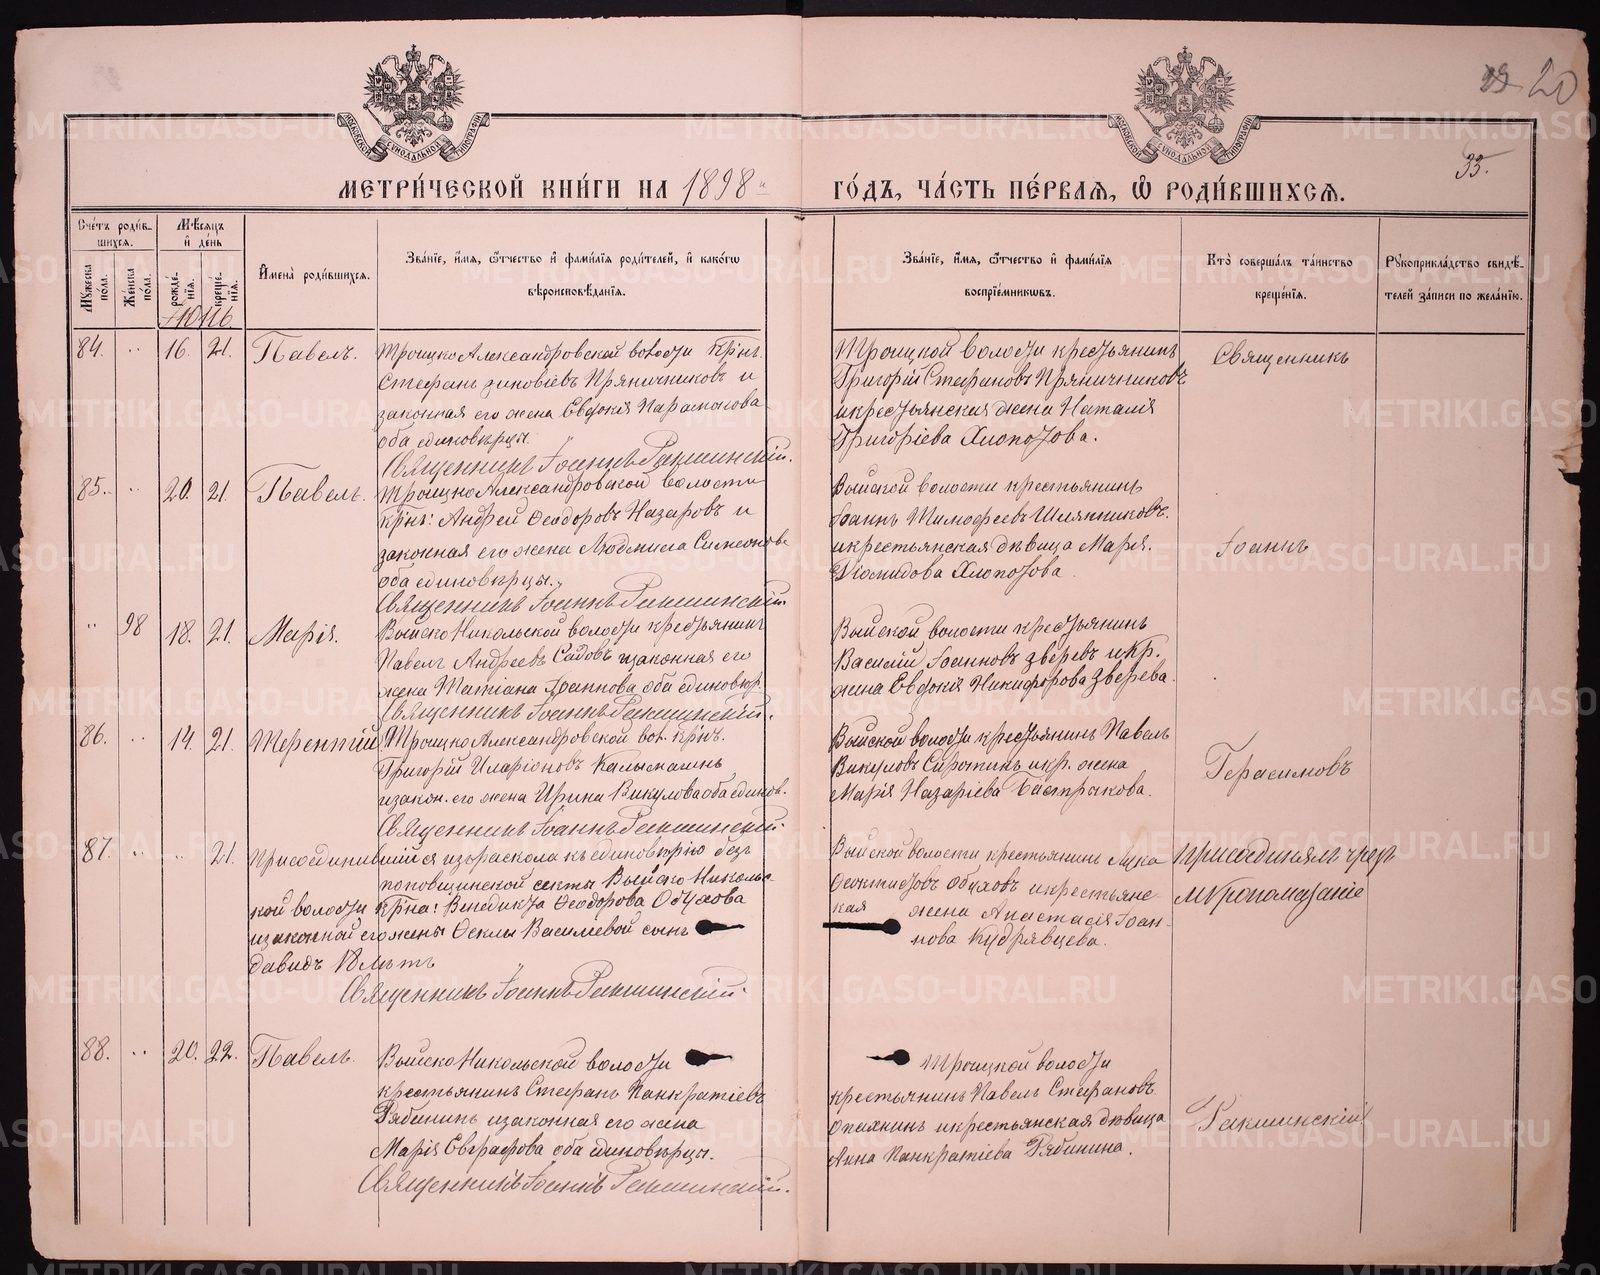 22 20
МОСКОВСКОЙ СѴНОДАЛЬНОЙ ТИПОГРАФІИ
МОСКОВСКОЙ СѴНОДАЛЬНОЙ ТИПОГРАФІИ
33.
МЕТРИ́ЧЕСКОЙ КНИ́ГИ НА 1898 ГО́ДЪ, ЧА́СТЬ ПЕ́РВАЯ, Ѡ РОДИ́ВШИХСЯ.
Сче́тъ роди́в-
шихся.
Мѣ́сяцъ
и҆ де́нь
Му́жеска по́ла.
Же́нска по́ла.
рожде́-
нїя.
креще́-
нїя.
И҆мена̀ роди́вшихся.
Зва́нїе, и҆́мя, ѻ҆́тчество и҆ фами́лїѧ роди́телей, и҆ како́гѡ
вѣроисповѣ́данїѧ.
Зва́нїе, и҆́мя, ѻ҆́тчество и҆ фами́лїѧ
воспрїе́мникѡвъ.
Кто̀ соверша́лъ та́инство
креще́нїѧ.
Рꙋкоприкла́дство свидѣ́-
телей за́писи по жела́нїю.
Июнь.
84. „ 16. 21. Павелъ.
Троицко Александровской волости кр̃нъ.
Стефанъ Зиновіевъ Пряничниковъ и
законная его жена Евдокія Парамонова
оба единовѣрцы.
Священникъ Іоаннъ Ракшинскій.
Троицкой волости крестьянинъ
Григорій Стефановъ Пряничниковъ
и крестьянская жена Наталія
Григоріева Хлопотова.
Священникъ
85. „ 20. 21. Павелъ.
Троицко Александровской волости
кр̃нъ: Андрей Ѳеодоровъ Назаровъ и
законная его жена Людмила Симеонова
оба единовѣрцы.
Священникъ Іоаннъ Ракшинскій.
Выйской волости крестьянинъ
Іоаннъ Тимофеевъ Шляпниковъ.
и крестьянская дѣвица Марія.
Діомидова Хлопотова.
Іоаннъ
„ 98 18. 21. Марія.
Выйско Никольской волости крестьянинъ
Павелъ Андреевъ Садовъ и законная его
жена Татіана Іоаннова оба единовѣр.
Священникъ Іоаннъ Ракшинскій.
Выйской волости крестьянинъ
Василій Іоанновъ Зверевъ и кр.
жена Евдокія Никифорова Зверева.
86. „ 14. 21. Терентій
Троицко Александровской вол. кр̃нъ.
Григорій Иларіоновъ Калымагинъ
и закон. его жена Ирина Викулова оба единов.
Священникъ Іоаннъ Ракшинскій.
Выйской волости крестьянинъ Павелъ
Викуловъ Сиротинъ и кр. жена
Марія Назаріева Бастрыкова.
Герасимовъ
87. „ „ 21. Присоединившійся изъ раскола къ единовѣрію безъ
поповщинской секты Выйско Николь-
ской волости кр̃на: Венедикта Ѳеодорова Обухова
и законной его жены Ѳеклы Василіевой сынъ
Давидъ 18 лѣтъ
Священникъ Іоаннъ Ракшинскій.
Выйской волости крестьянинъ Лука
Ѳеоктистовъ Обуховъ и крестьянс-
кая жена Анастасія Іоан-
нова Кудрявцева.
присоединялъ чрез
мѵропомазаніе
88. „ 20. 22. Павелъ.
Выйско Никольской волости
крестьянинъ Стефанъ Панкратіевъ
Рябининъ и законная его жена
Марія Евграфова оба единовѣрцы.
Священникъ Іоаннъ Ракшинскій.
Троицкой волости
крестьянинъ Павелъ Стефановъ
Опалихинъ и крестьянская дѣвица
Анна Панкратіева Рябинина.
Ракшинскій
METRIKI.GASO-URAL.RU